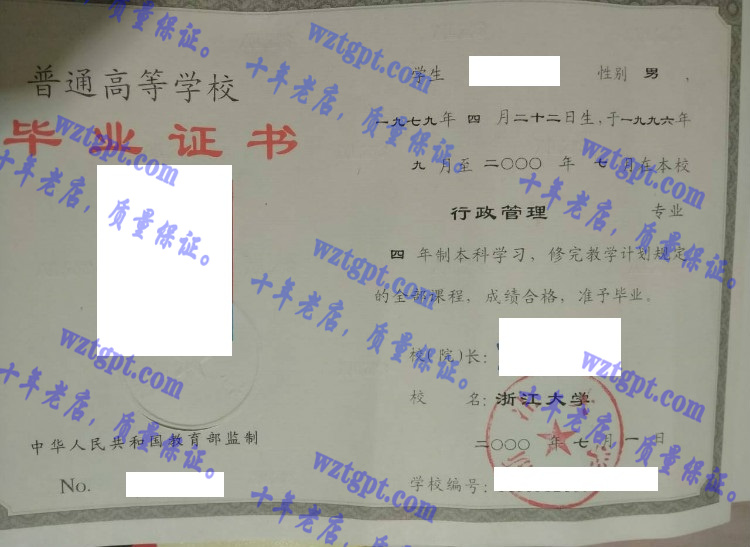 普通高等学校
毕业证书
中华人民共和国教育部监制
No.
学生 性别 男 ,
一九七九年 四 月二十二日生,于一九九六年
九 月至 二〇〇〇 年 七 月在本校
行政管理 专业
四 年制本科学习, 修完教学计划规定
的全部课程, 成绩合格, 准予毕业。
校(院)长:
校 名: 浙江大学
二〇〇〇 年 七 月 一 日
学校编号:
wztgpt.com
十年老店, 质量保证。
wztgpt.com
十年老店, 质量保证。
wztgpt.com
十年老店, 质量保证。
wztgpt.com
十年老店, 质量保证。
wztgpt.com
十年老店, 质量保证。
wztgpt.com
十年老店, 质量保证。
wztgpt.com
十年老店, 质量保证。
wztgpt.com
十年老店, 质量保证。